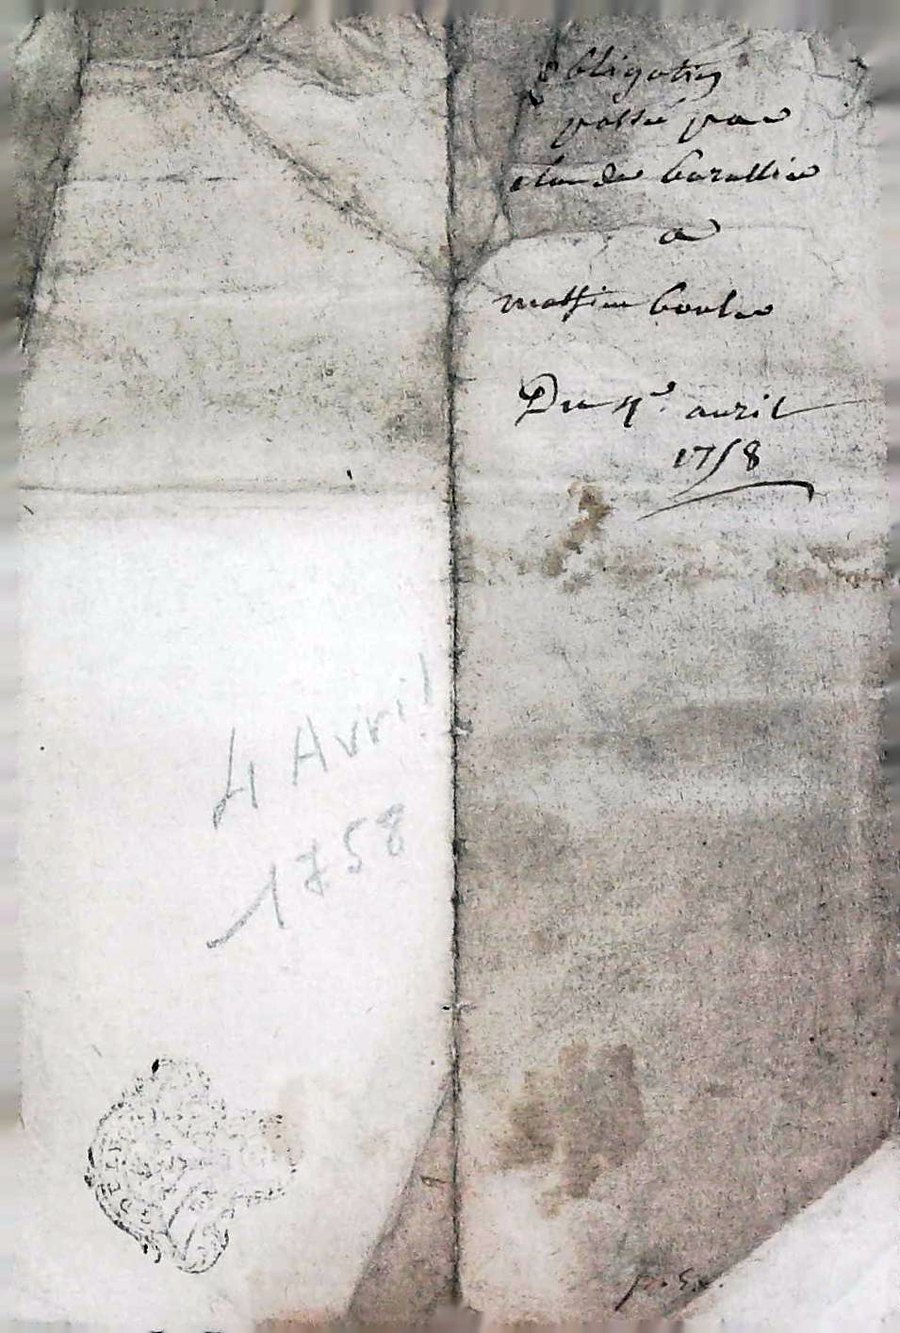 obligation
passé par
claude barallier
a
mathieu boule
Du 4e avril
1758
4 Avril
1758